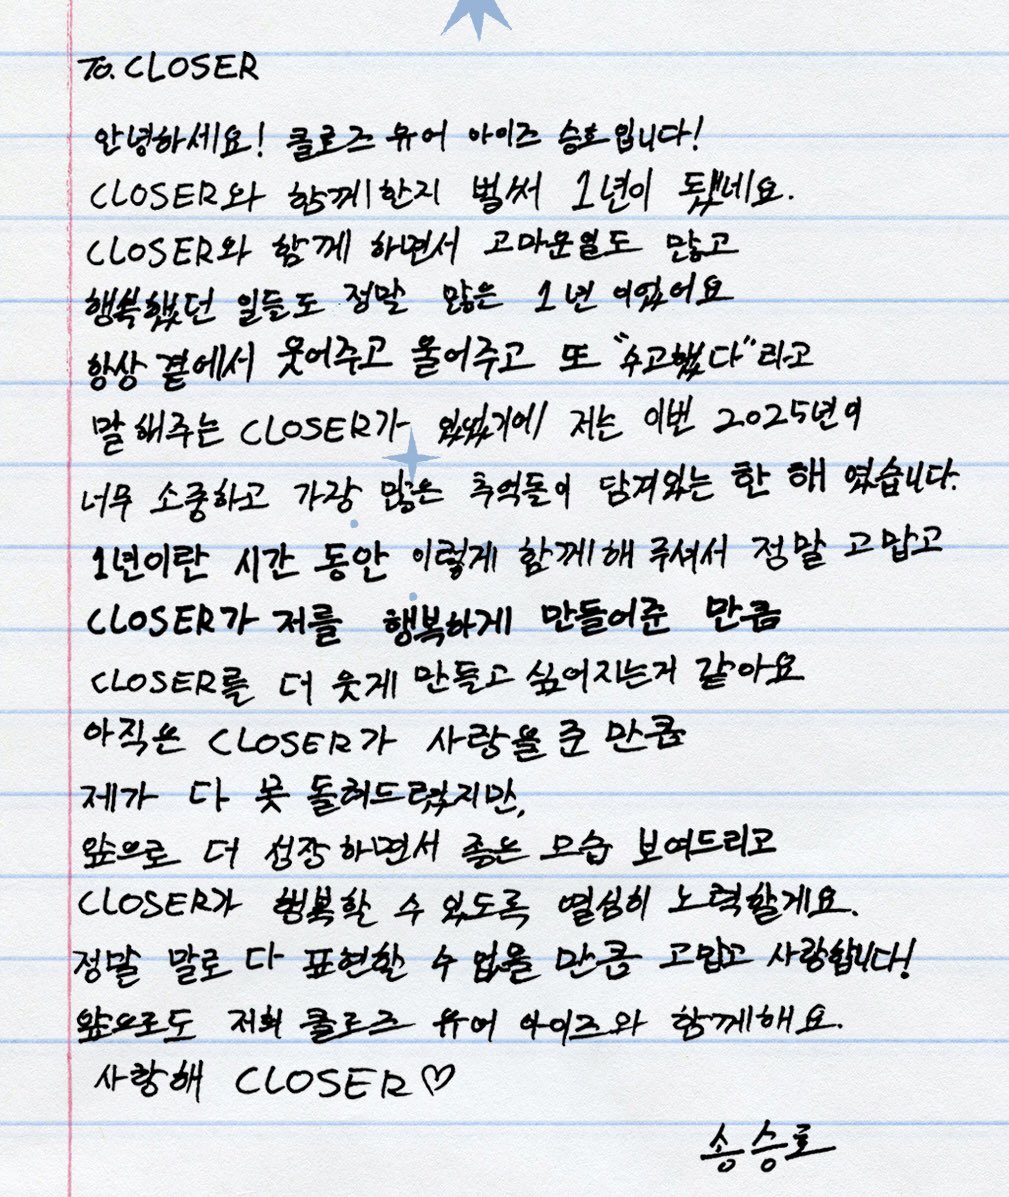 To. CLOSER
안녕하세요! 클로즈 유어 아이즈 승호입니다!
CLOSER와 함께한지 벌써 1년이 됐네요.
CLOSER와 함께 하면서 고마운일도 많고
행복했던 일들도 정말 많은 1년 이였어요
항상 곁에서 웃어주고 울어주고 또 "수고했다"라고
말해주는 CLOSER가 있었기에 저는 이번 2025년이
너무 소중하고 가장 많은 추억들이 담겨있는 한 해 였습니다.
1년이란 시간 동안 이렇게 함께해 주셔서 정말 고맙고
CLOSER가 저를 행복하게 만들어준 만큼
CLOSER를 더 웃게 만들고 싶어지는거 같아요
아직은 CLOSER가 사랑을 준 만큼
제가 다 못 돌려드렸지만,
앞으로 더 성장하면서 좋은 모습 보여드리고
CLOSER가 행복할 수 있도록 열심히 노력할게요.
정말 말로 다 표현할 수 없을 만큼 고맙고 사랑합니다!
앞으로도 저희 클로즈 유어 아이즈와 함께해요.
사랑해 CLOSER♡
송승호